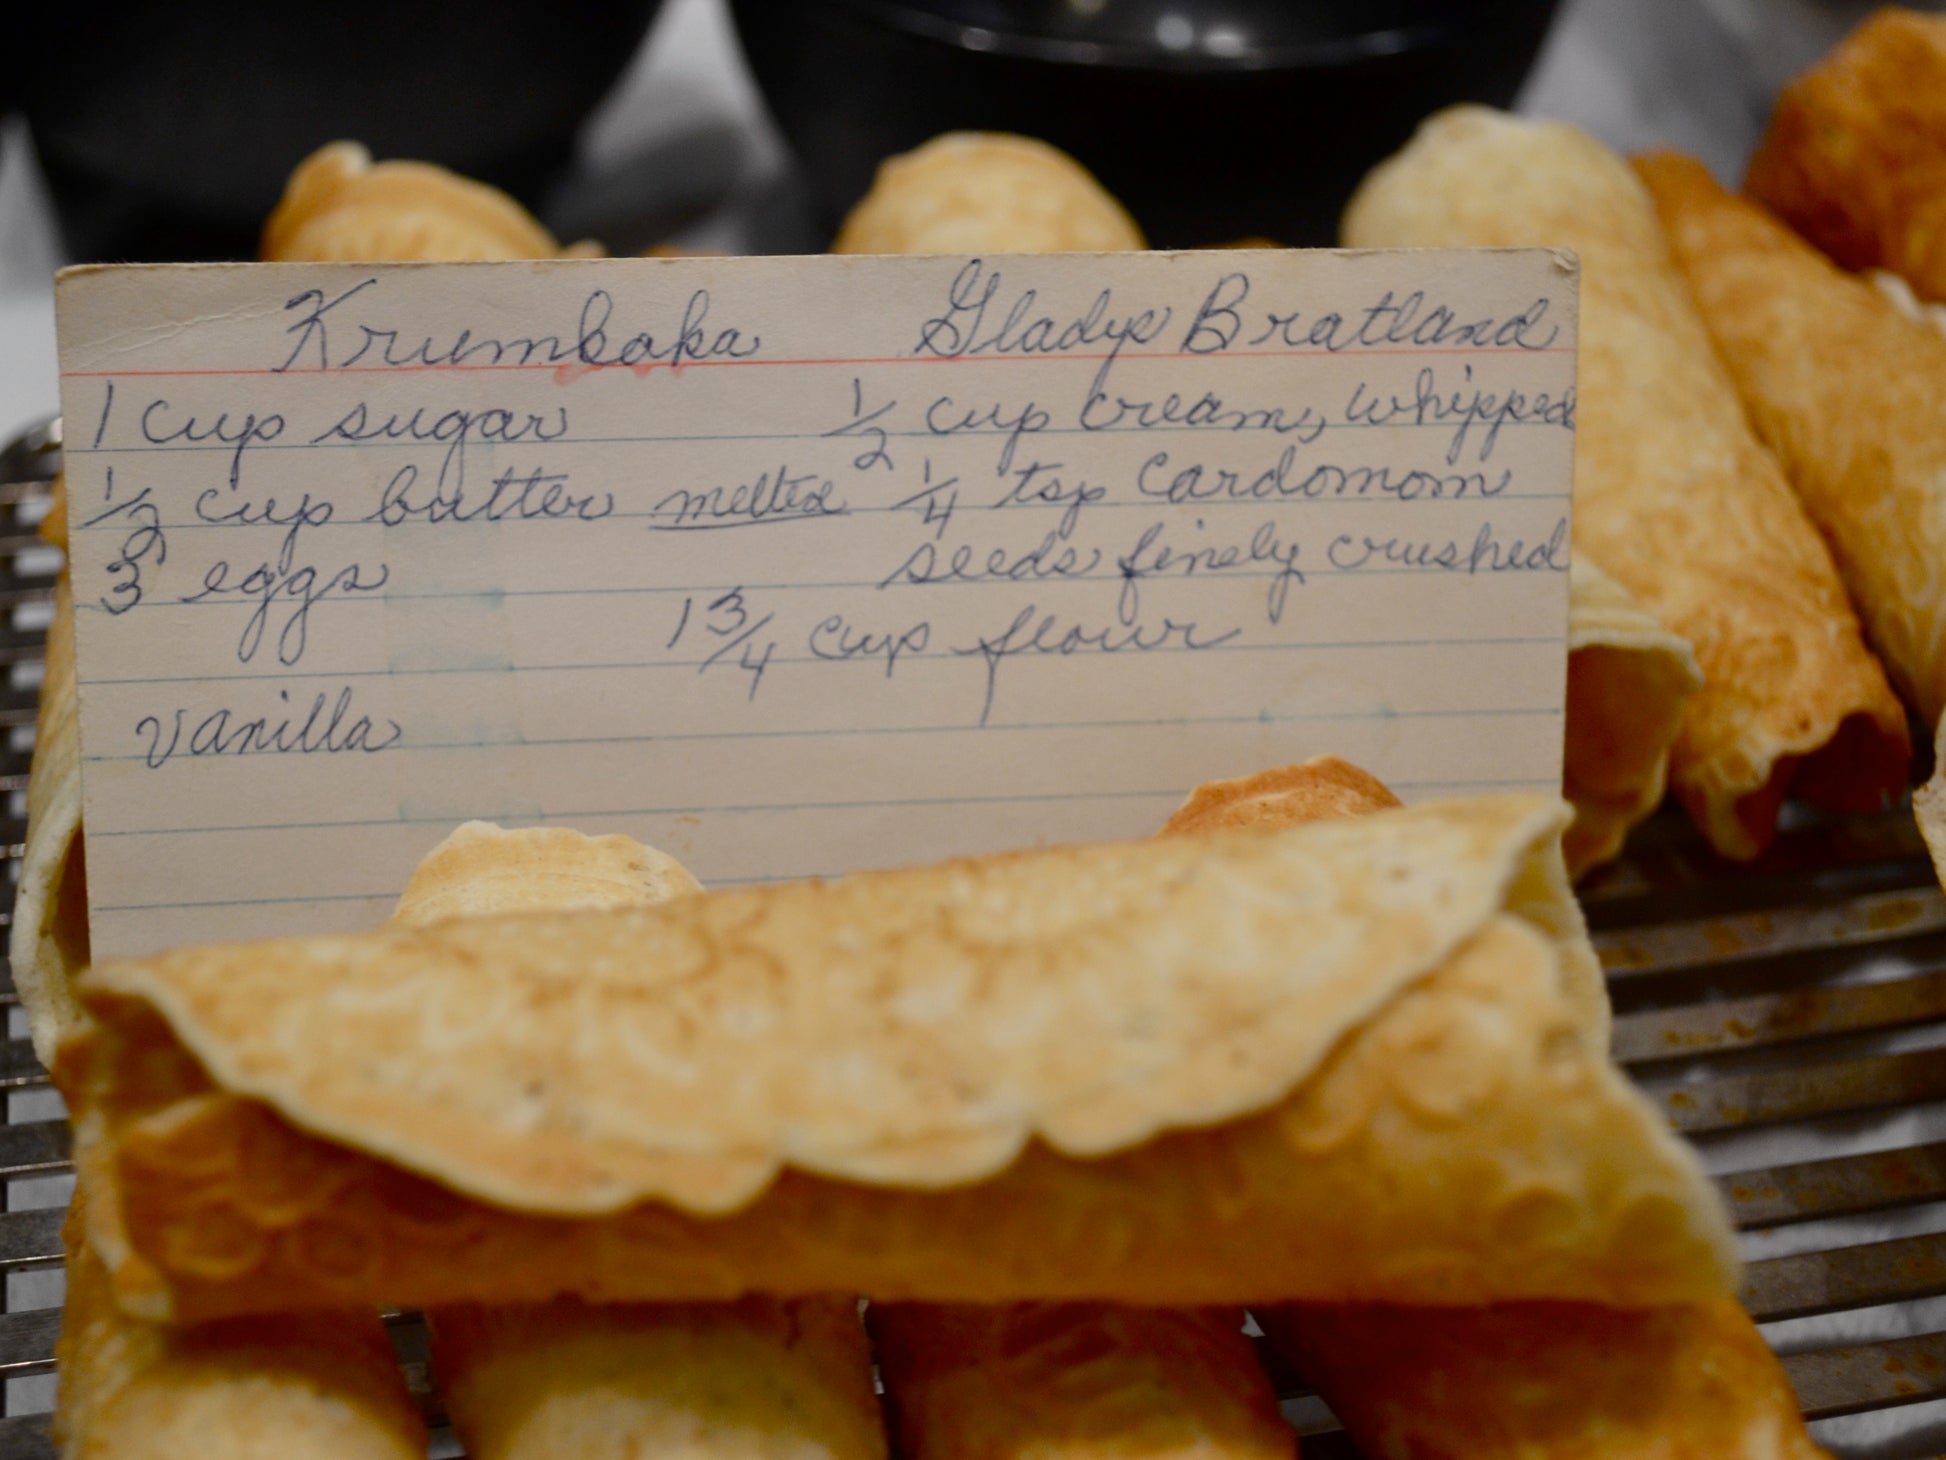 Krumkaka Gladys Bratland
1 cup sugar ½ cup cream, whipped
½ cup butter melted ¼ tsp Cardomom
3 eggs seeds finely crushed
1 ¾ cup flour
Vanilla